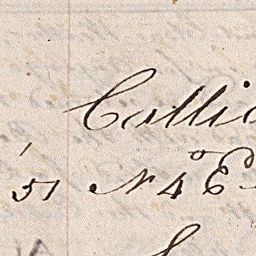 Collic
'51 N 4° E